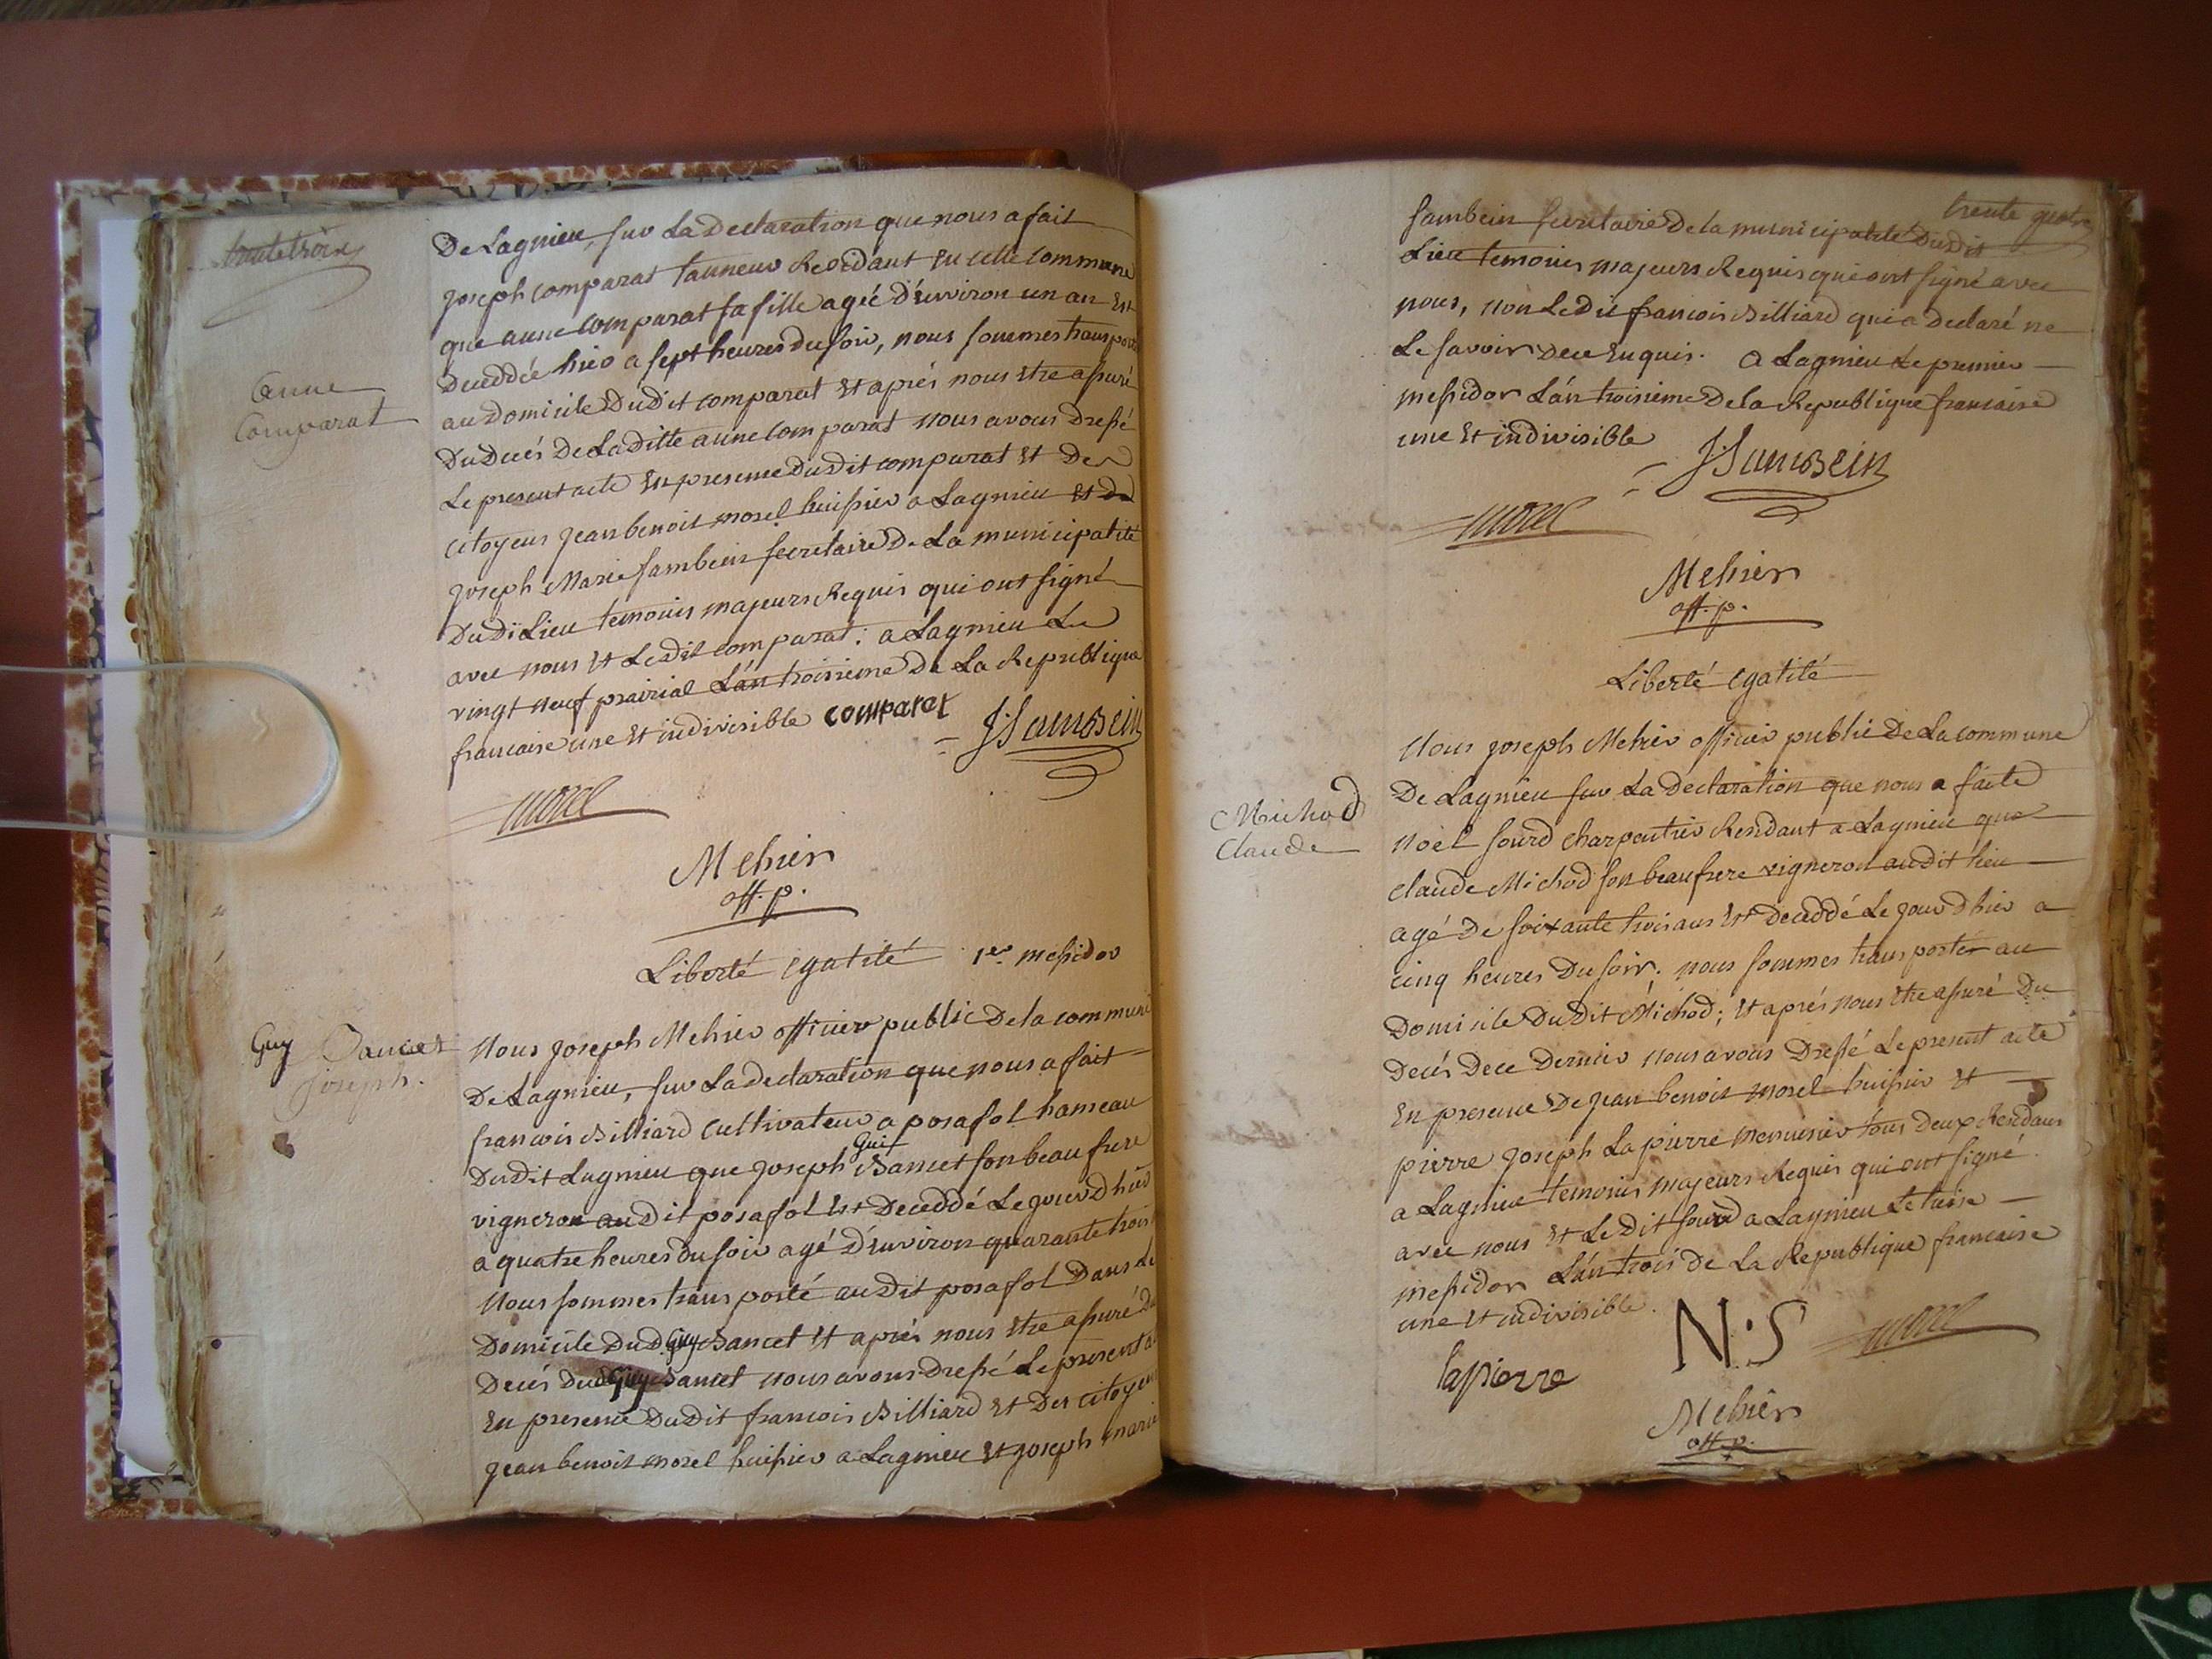 trente trois
De Lagnieu, sur La Declaration que nous a fait
joseph comparat tanneur Residant En cette commune
que anne comparat sa fille agée d'Environ un an Est
Deceddée hier a sept heures du soir, nous sommes transporté
Anne
Comparat
au Domicile Dudit comparat Et aprés nous Etre assuré
Du Decés De La Ditte anne comparat nous avons Dressé
Le present acte En presence Du Dit comparat Et Des
citoyens jean benoit morel huissier a Lagnieu Et de
joseph Marie sambein secretaire De La municipalité
Du Di Lieu temoins majeurs Requis qui ont signé
avec nous Et Le Dit comparat : a Lagnieu Le
vingt neuf prairial L'an troisieme De La Republique
francaise une Et indivisible comparat
J: Sambein
morel
Mehier
off. p.
Liberté Egalité 1er messidor
Guy Bancet
joseph.
Nous joseph Mehier officier public De la commune
De Lagnieu, sur La Declaration que nous a fait
francois Billiard Cultivateur a posafol hameau
Gui
Dudit Lagnieu que joseph Bancet son beau frere
vigneron au Dit posafol Est Deceddé Le jour d'hier
a quatre heures du soir agé D'Environ quarante trois
Nous sommes transporté au Dit posafol Dans Le
Domicile Dud. Guy Bancet Et aprés nous Etre assuré Du
Decés Dud Guy Bancet nous avons Dressé Le present
En presence Du Dit francois Billiard Et Des citoyens
jean benoit morel huissier a Lagnieu Et joseph marie
trente quatre
sambein secretaire De la municipalité Du Dit
Lieu temoins majeurs Requis qui ont signé avec
nous, non Le Dit francois Billiard qui a Declaré ne
Le savoir De ce Enquis. a Lagnieu Le premier
messidor L'an troisieme De la Republique francaise
une Et indivisible
J: Sambein
morel
Mehier
off. p.
Liberté Egalité
Nous joseph Mehier officier public De La commune
De Lagnieu sur La Declaration que nous a faite
Michod
Claude
Noel sourd charpentier Residant a Lagnieu que
claude Michod son beau frere vigneron au dit lieu
agé De soixante trois ans Est Deceddé Le jour d'hier a
cinq heures Du soir ; nous sommes transporter au
Domicile Du Dit Michod ; Et aprés nous Etre assuré Du
Decés De ce Dernier nous avons Dressé Le present acte
En presence De jean benoit morel huissier Et
pierre joseph Lapierre menuisier tous Deux Residans
a Lagnieu temoins majeurs Requis qui ont signé
avec nous Et Le Dit sourd a Lagnieu Le treise
messidor L'an trois De La Republique francaise
une Et indivisible.
N. S
morel
lapierre
Mehier
off. p.